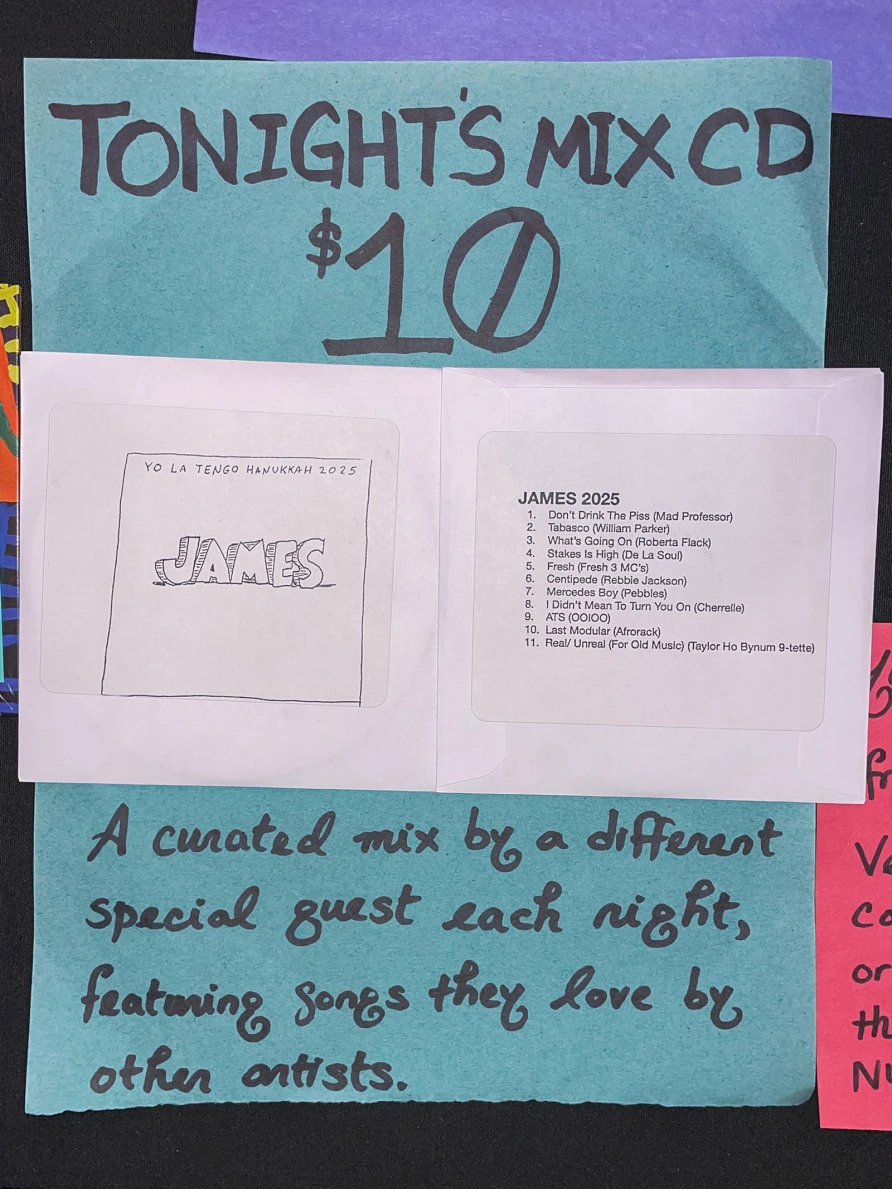 TONIGHT'S MIX CD
$10
YO LA TENGO HANUKKAH 2025
JAMES
JAMES 2025
1. Don't Drink The Piss (Mad Professor)
2. Tabasco (William Parker)
3. What's Going On (Roberta Flack)
4. Stakes Is High (De La Soul)
5. Fresh (Fresh 3 MC's)
6. Centipede (Rebbie Jackson)
7. Mercedes Boy (Pebbles)
8. I Didn't Mean To Turn You On (Cherrelle)
9. ATS (OOIOO)
10. Last Modular (Afrorack)
11. Real/ Unreal (For Old Music) (Taylor Ho Bynum 9-tette)
A curated mix by a different
special guest each night,
featuring songs they love by
other artists.